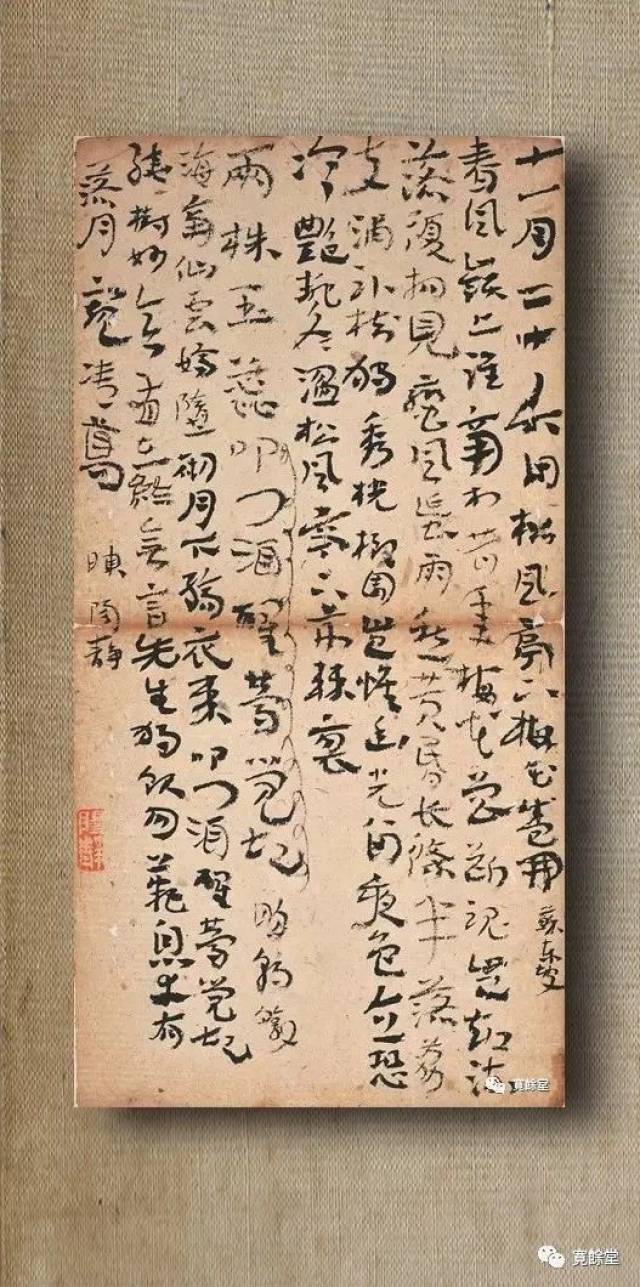 十一月二十六日松風亭下梅花盛開 蘇東坡
春風嶺上淮南村昔年梅花曾斷魂豈知流
落復相見蠻風蜑雨愁黃昏長條半落荔
支浦卧樹獨秀桄榔園豈惟幽光留夜色直恐
冷艷排冬溫松風亭下荊棘裏
兩株玉蕊叩門酒醒夢覺起明朝暾
海南仙雲嬌墮砌月下縞衣來叩門酒醒夢覺起
繞樹妙意有在終無言先生獨飲勿歎息幸有
落月窺清尊
寬餘堂
寬餘堂